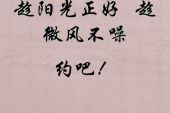 趁阳光正好 趁
微风不噪
约吧！